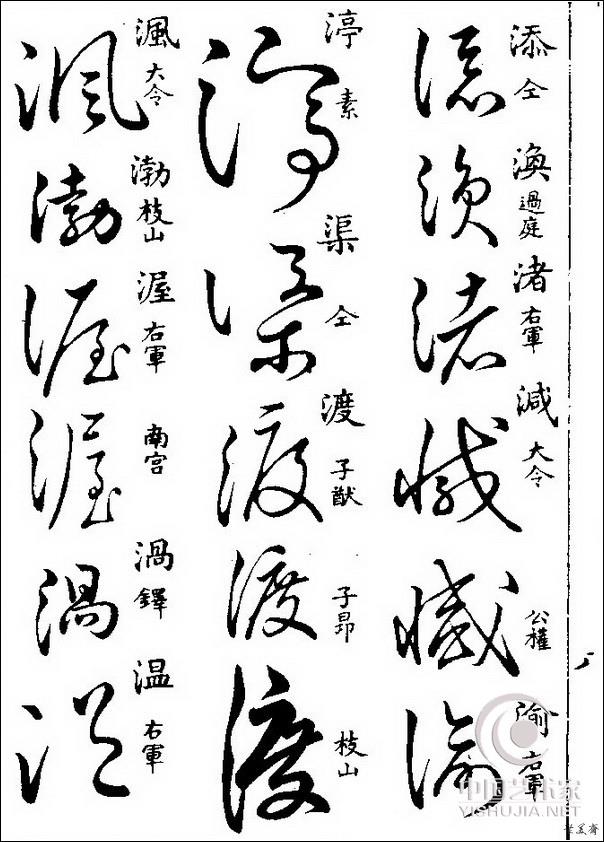 添 仝
渙 過庭
渚 右軍
減 大令
公權
渝 右軍
渟 素
渠 仝
渡 子猷
子昂
枝山
渢 大令
渤 枝山
渥 右軍
南宮
渦 鐸
温 右軍
中国艺术家
YISHUJIA.NET